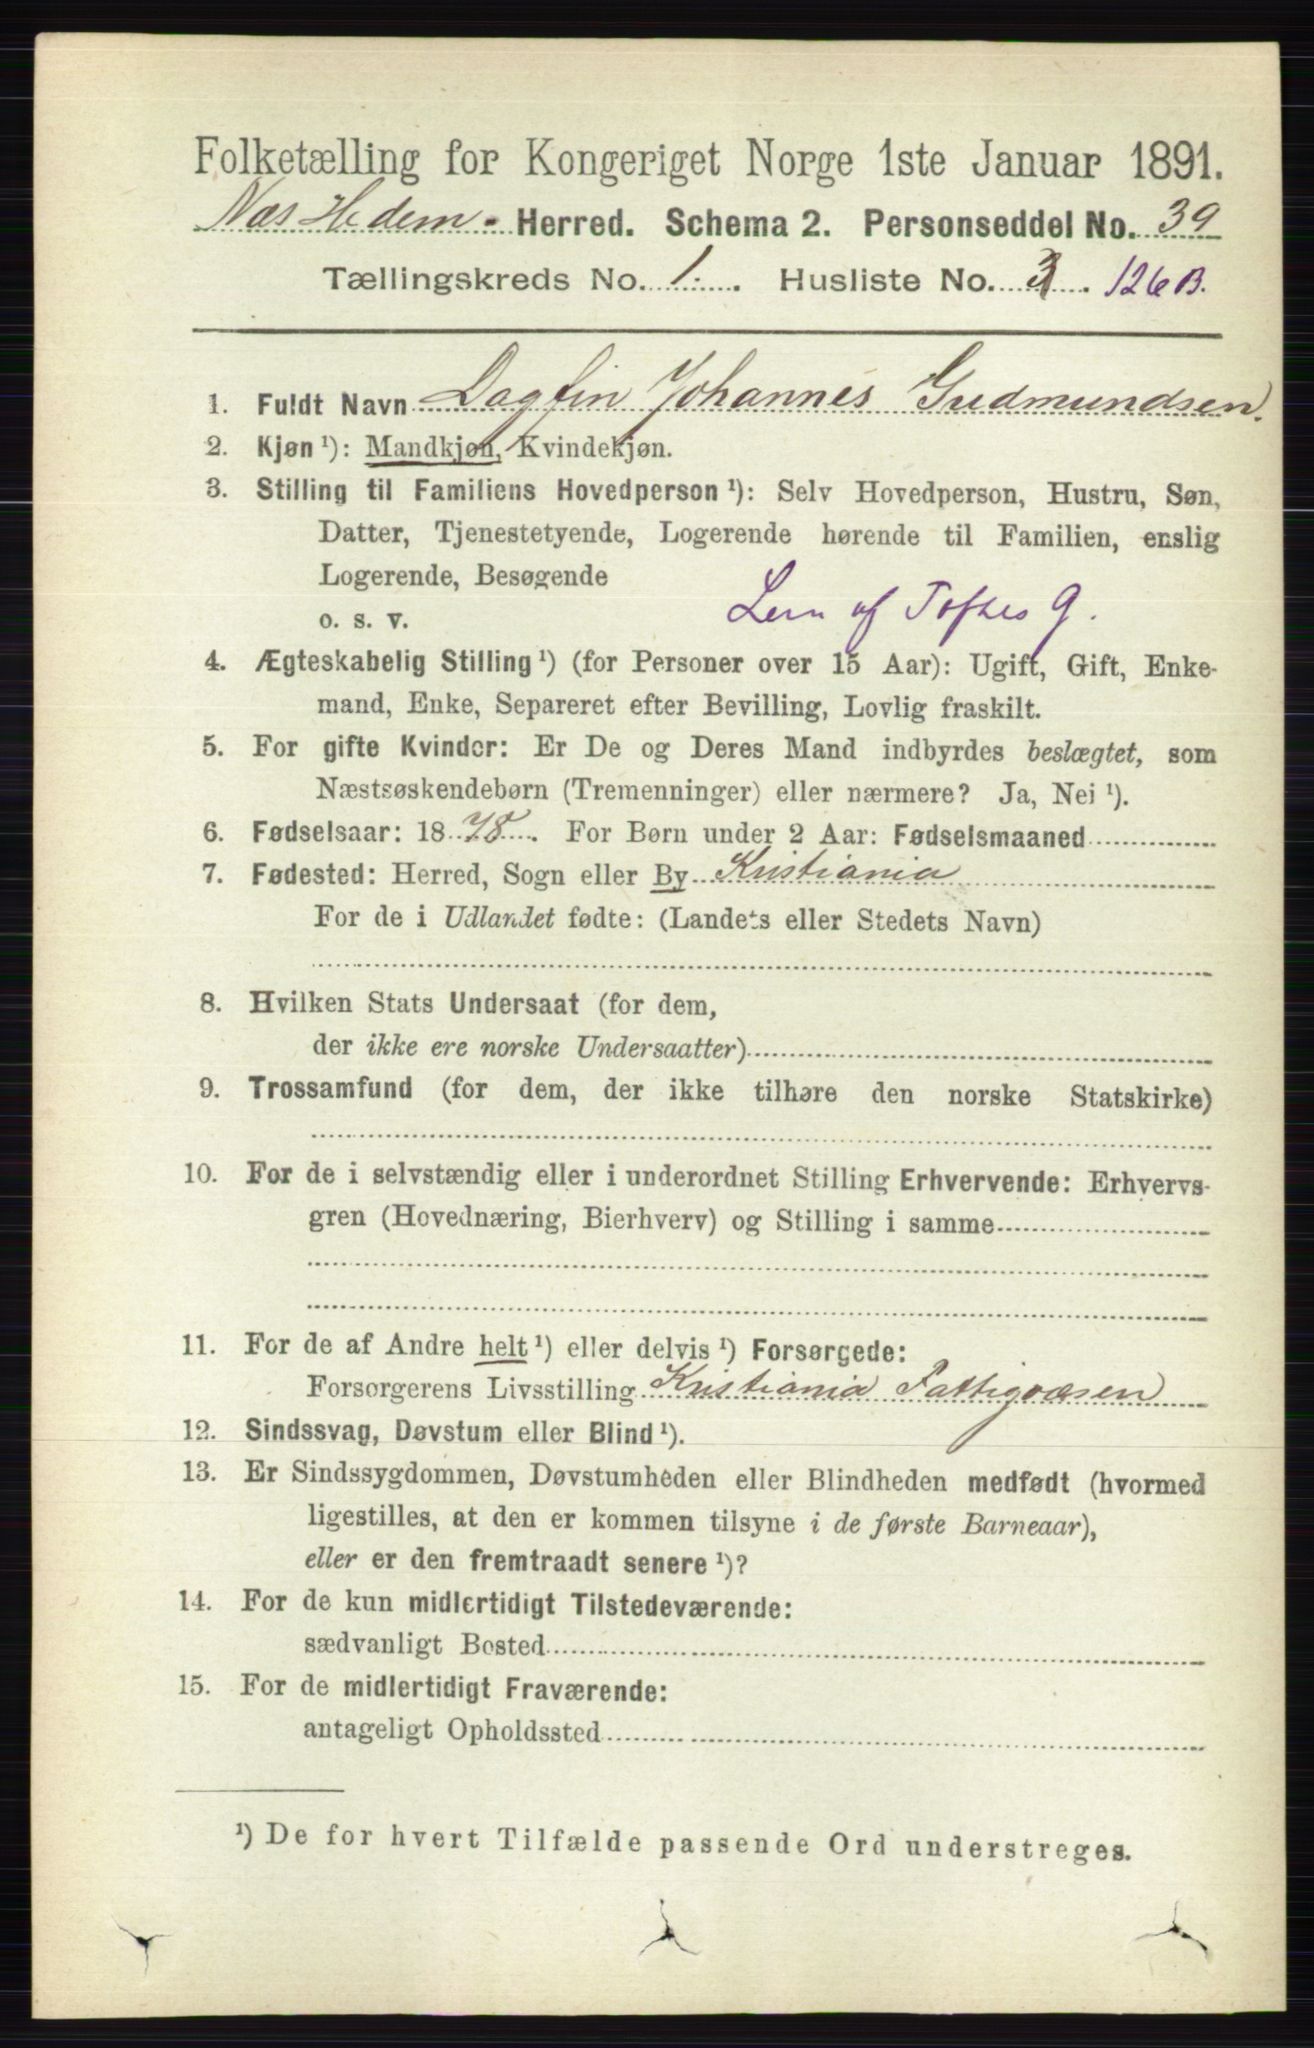 Folketælling for Kongeriget Norge 1ste Januar 1891.
Næs Hedem. Herred. Schema 2. Personseddel No. 39
Tællingskreds No. 1. Husliste No. 3. 126 B.
1. Fuldt Navn Dagfin Johannes Gudmundsen.
2. Kjøn ¹): Mandkjøn, Kvindekjøn.
3. Stilling til Familiens Hovedperson ¹): Selv Hovedperson, Hustru, Søn,
Datter, Tjenestetyende, Logerende hørende til Familien, enslig
Logerende, Besøgende
o. s. v. af Toftes G.
4. Ægteskabelig Stilling ¹) (for Personer over 15 Aar): Ugift, Gift, Enke-
mand, Enke, Separeret efter Bevilling, Lovlig fraskilt.
5. For gifte Kvinder: Er De og Deres Mand indbyrdes beslægtet, som
Næstsøskendebørn (Tremenninger) eller nærmere? Ja, Nei ¹).
6. Fødselsaar: 1878. For Børn under 2 Aar: Fødselsmaaned
7. Fødested: Herred, Sogn eller By Kristiania
For de i Udlandet fødte: (Landets eller Stedets Navn)
8. Hvilken Stats Undersaat (for dem,
der ikke ere norske Undersaatter)
9. Trossamfund (for dem, der ikke tilhøre den norske Statskirke)
10. For de i selvstændig eller i underordnet Stilling Erhvervende: Erhvervs-
gren (Hovednæring, Bierhverv) og Stilling i samme
11. For de af Andre helt ¹) eller delvis ¹) Forsørgede:
Forsørgerens Livsstilling Kristiania Fattigvæsen
12. Sindssvag, Døvstum eller Blind ¹).
13. Er Sindssygdommen, Døvstumheden eller Blindheden medfødt (hvormed
ligestilles, at den er kommen tilsyne i de første Barneaar),
eller er den fremtraadt senere ¹)?
14. For de kun midlertidigt Tilstedeværende:
sædvanligt Bosted
15. For de midlertidigt Fraværende:
antageligt Opholdssted
¹) De for hvert Tilfælde passende Ord understreges.